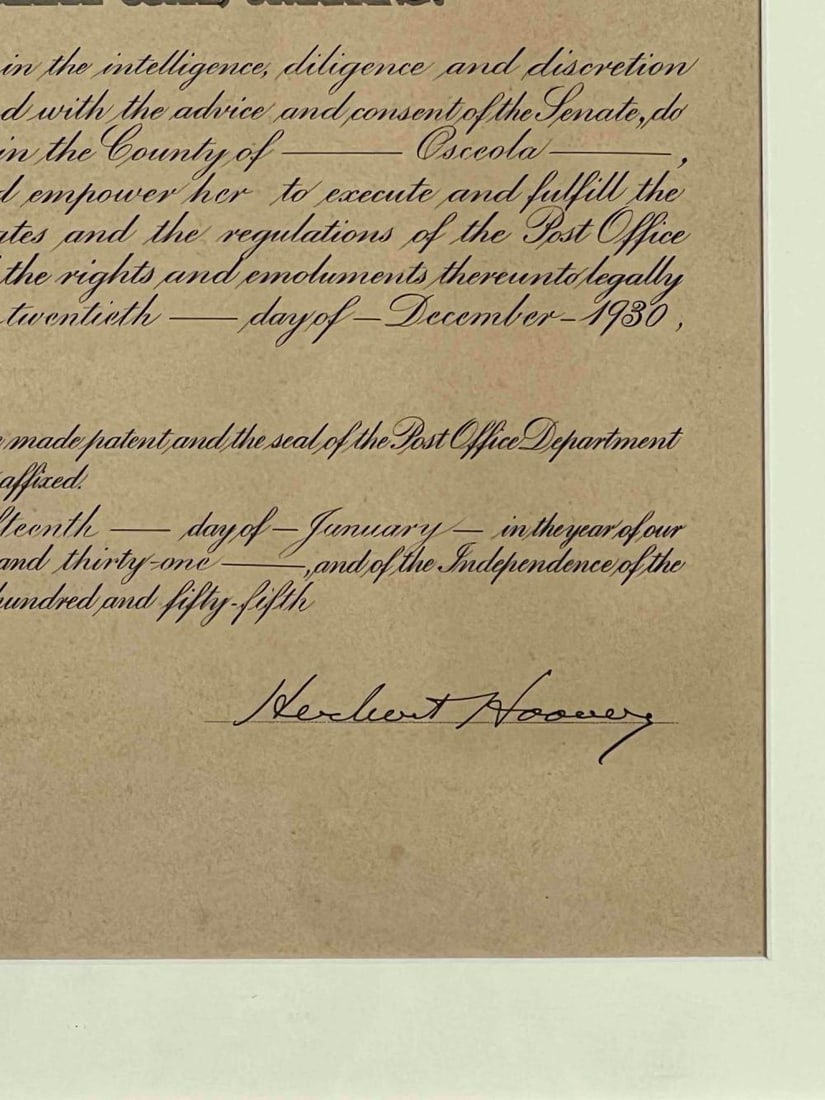 in the intelligence, diligence and discretion
d with the advice and consent of the Senate, do
in the County of — Osceola —,
d empower her to execute and fulfill the
ates and the regulations of the Post Office
the rights and emoluments thereunto legally
twentieth — day of — December – 1930,
e made patent, and the seal of the Post Office Department
affixed.
fteenth — day of — January — in the year of our
and thirty-one —, and of the Independence of the
hundred and fifty-fifth
Herbert Hoover